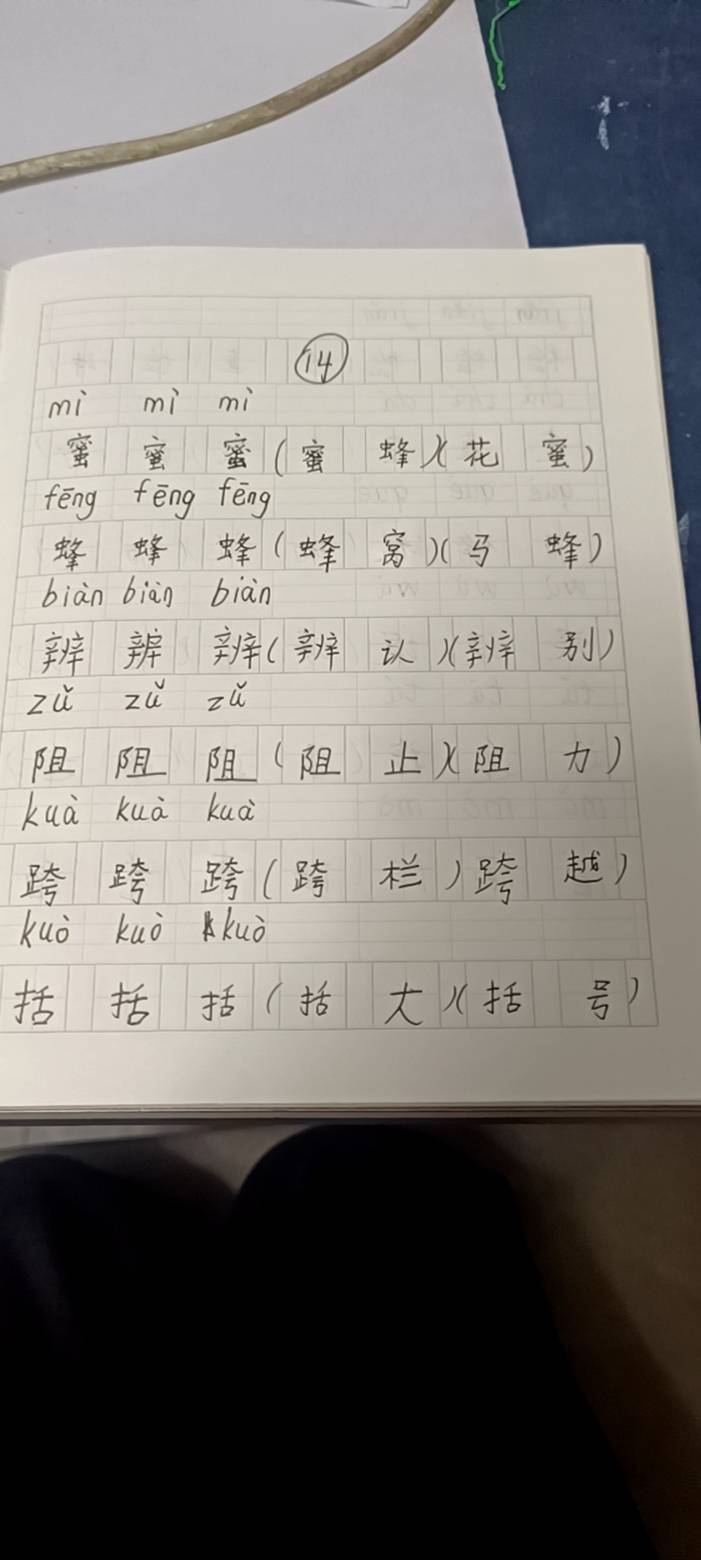 14
mì mì mì
蜜 蜜 蜜 ( 蜜 蜂 ) ( 花 蜜 )
fēng fēng fēng
蜂 蜂 蜂 ( 蜂 窝 ) ( 马 蜂 )
biàn biàn biàn
辨 辨 辨 ( 辨 认 ) ( 辨 别 )
zǔ zǔ zǔ
阻 阻 阻 ( 阻 止 ) ( 阻 力 )
kuà kuà kuà
跨 跨 跨 ( 跨 栏 ) 跨 越 )
kuò kuò kuò
括 括 括 ( 括 大 ) ( 括 号 )